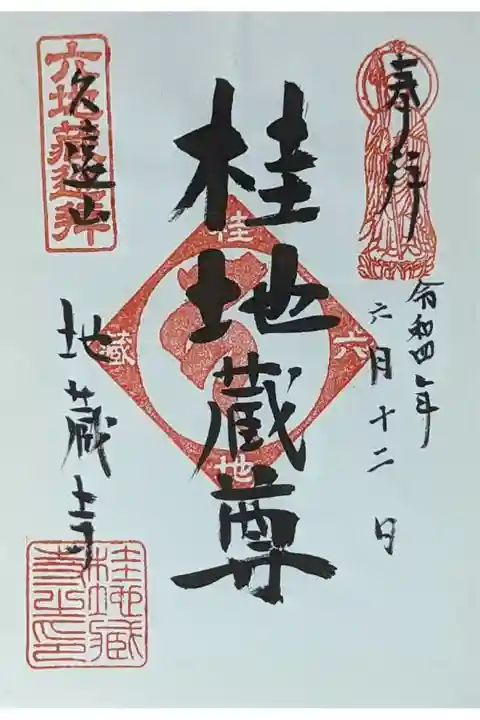 奉拝
令和四年
六月十二日
桂地蔵尊
桂
六
地
蔵
六地蔵巡拝
久遠山
地蔵寺
桂地蔵